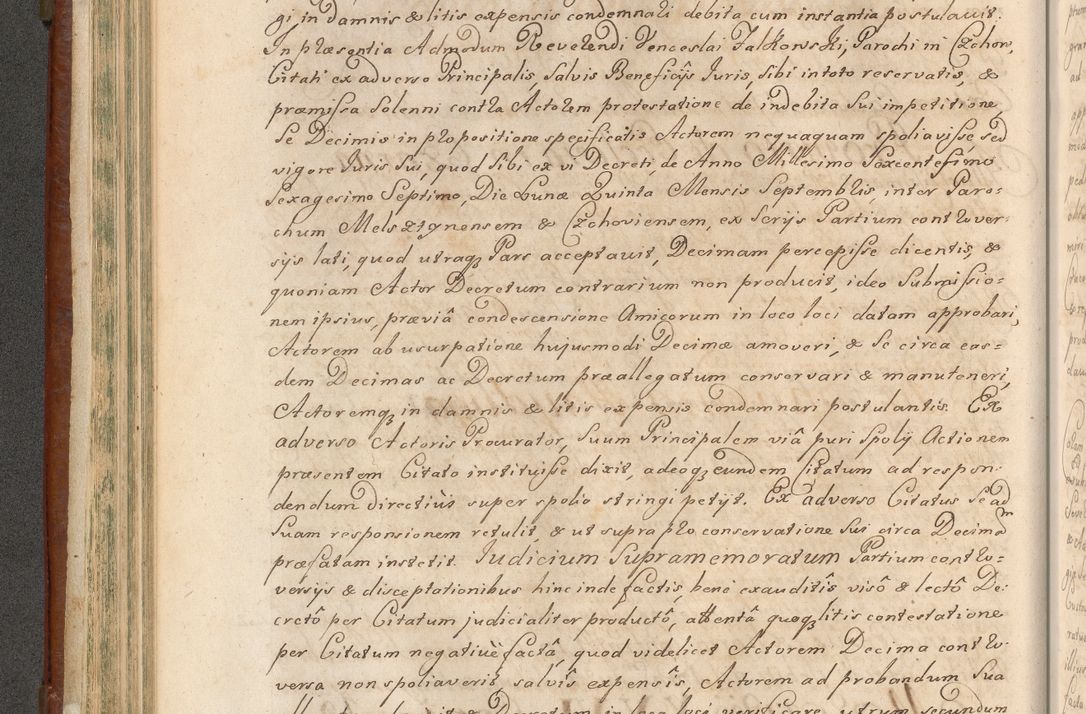 gi in damnis & litis expensis condemnari debita cum instantia postulavit.
In præsentia Admodum Reverendi Venceslai Falkowski, Parochi in Czchow,
Citati ex adverso Principalis, Salvis Beneficijs Iuris, Sibi in toto reservatis, &
præmissa Solenni contra Actorem protestatione de indebita Sui impetitione,
Se Decimis in propositione specificatis Actorem nequaquam spoliavisse, sed
vigore Iuris Sui, quod Sibi ex vi Decreti, de Anno Millesimo Sexcentesimo
Sexagesimo Septimo, Die Lunæ Quinta Mensis Septembris, inter Paro-
chum Melsztynensem & Czchoviensem, ex Serijs Partium controver-
sijs lati, quod utraq3 Pars acceptavit, Decimam percepisse dicentis, &
quoniam Actor Decretum contrarium non producit, ideo Submissio-
nem ipsius, præviâ condescensione Amicorum in loco loci datam approbari,
Actorem ab usurpatione hujusmodi Decimæ amoveri, & Se circa eas-
dem Decimas ac Decretum præallegatum conservari & manuteneri,
Actoremq3 in damnis & litis expensis condemnari postulantis. Ex
adverso Actoris Procurator, Suum Principalem viâ puri Spolij Actionem
præsentem Citato instituisse dixit, adeoq3 eundem Citatum ad respon-
dendum directius super spolio stringi petijt. Ex adverso Citatus Se ad
Suam responsionem retulit, & ut supra pro conservatione Sui circa Decimam
præfatam institit. Iudicium Supramemoratum Partium contro-
versijs & disceptationibus hinc inde factis, bene exauditîs visô & lectô De-
cretô per Citatum judicialiter productô, attentâ quoq3 litis contestatione
per Citatum negativè factâ, quod videlicet Actorem Decima contro-
versa non spoliaverit, salvîs expensîs, Actorem ad probandum Sua
in loco loci verificare, utrum secundum